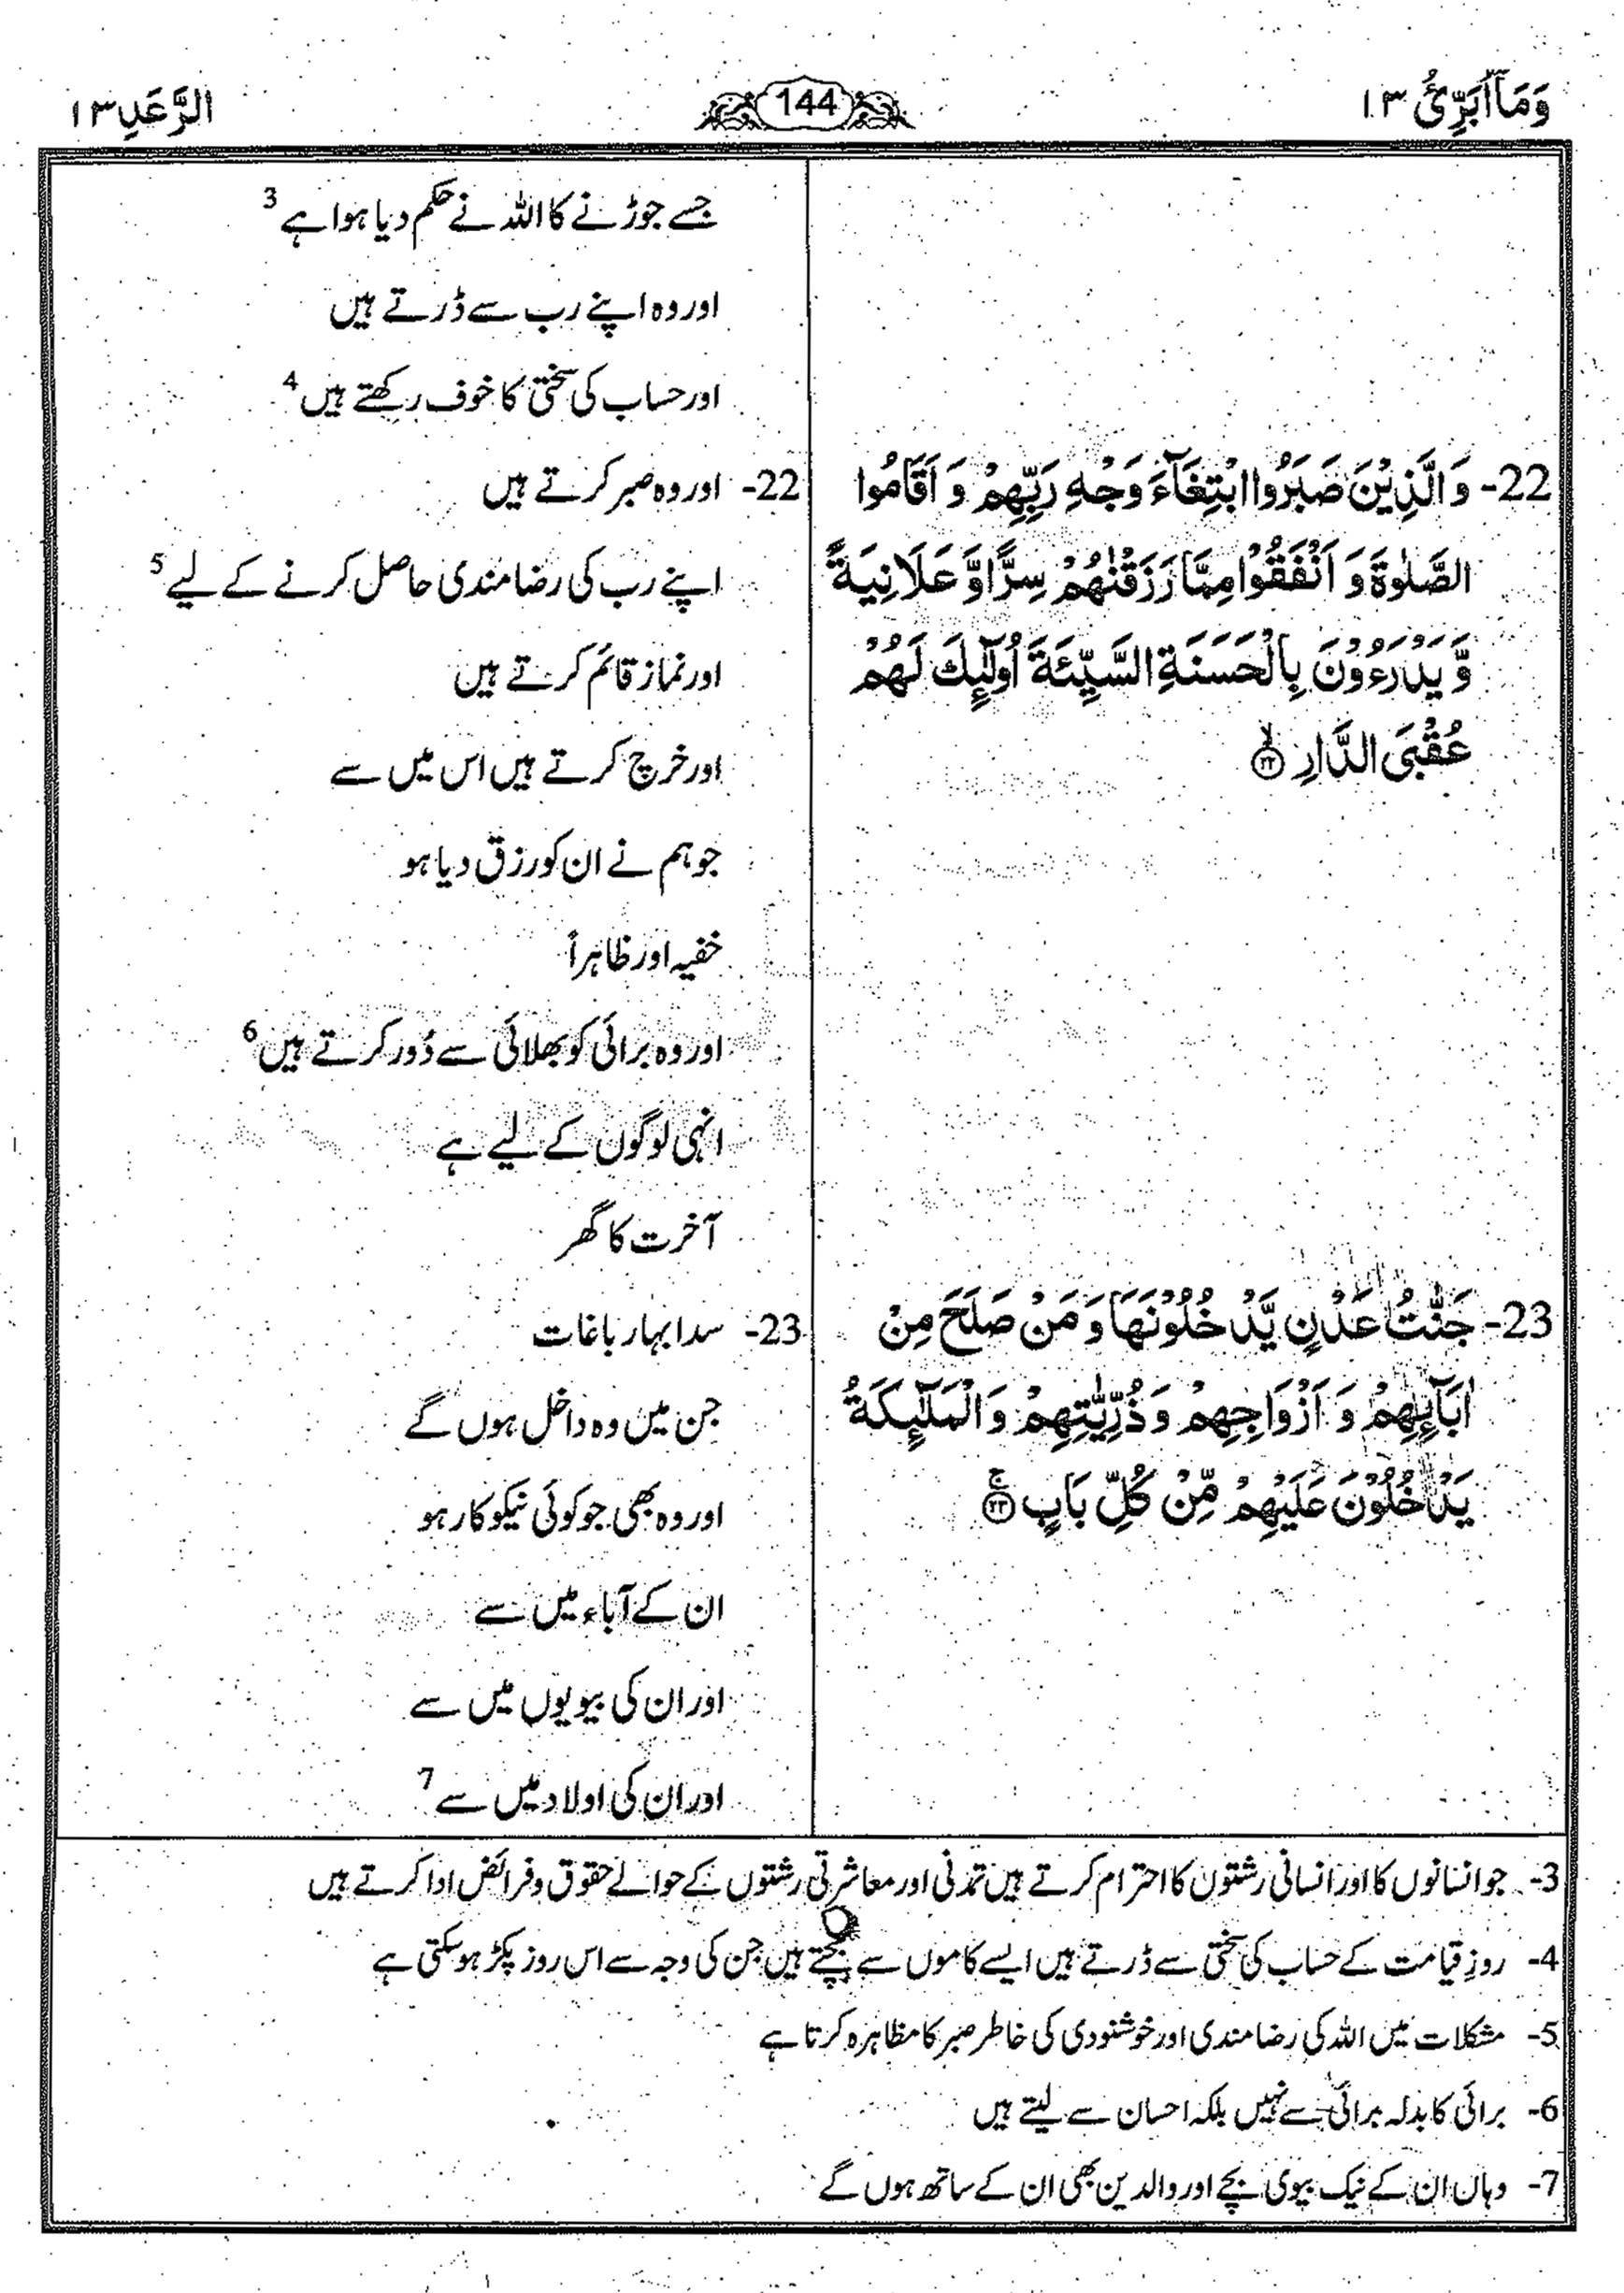 وَمَآ اُبَرِّئُ ۱۳
144
الرَّعَدِ ۱۳
22- وَ الَّذِيْنَ صَبَرُوا ابْتِغَآءَ وَجْهِ رَبِّهِمْ وَ اَقَامُوا
الصَّلٰوةَ وَ اَنْفَقُوْا مِمَّا رَزَقْنٰهُمْ سِرًّا وَّ عَلَانِيَةً
وَّ يَدْرَءُوْنَ بِالْحَسَنَةِ السَّيِّئَةَ اُولٰٓئِكَ لَهُمْ
عُقْبَى الدَّارِ ۙ۲۲
23- جَنّٰتُ عَدْنٍ يَّدْخُلُوْنَهَا وَ مَنْ صَلَحَ مِنْ
اٰبَآئِهِمْ وَ اَزْوَاجِهِمْ وَ ذُرِّيّٰتِهِمْ وَ الْمَلٰٓئِكَةُ
يَدْخُلُوْنَ عَلَيْهِمْ مِّنْ كُلِّ بَابٍ ۚ۲۳
جسے جوڑنے کا اللہ نے حکم دیا ہوا ہے 3
اور وہ اپنے رب سے ڈرتے ہیں
اور حساب کی سختی کا خوف رکھتے ہیں 4
22- اور وہ صبر کرتے ہیں
اپنے رب کی رضا مندی حاصل کرنے کے لیے 5
اور نماز قائم کرتے ہیں
اور خرچ کرتے ہیں اس میں سے
جو ہم نے ان کو رزق دیا ہو
خفیہ اور ظاہراً
اور وہ برائی کو بھلائی سے دُور کرتے ہیں 6
انہی لوگوں کے لیے ہے
آخرت کا گھر
23- سدا بہار باغات
جن میں وہ داخل ہوں گے
اور وہ بھی جو کوئی نیکوکار ہو
ان کے آباء میں سے
اور ان کی بیویوں میں سے
اور ان کی اولاد میں سے 7
3- جو انسانوں کا اور انسانی رشتوں کا احترام کرتے ہیں تمدنی اور معاشرتی رشتوں کے حوالے حقوق و فرائض ادا کرتے ہیں
4- روزِ قیامت کے حساب کی سختی سے ڈرتے ہیں ایسے کاموں سے بچتے ہیں جن کی وجہ سے اس روز پکڑ ہو سکتی ہے
5- مشکلات میں اللہ کی رضا مندی اور خوشنودی کی خاطر صبر کا مظاہرہ کرتا ہے
6- برائی کا بدلہ برائی سے نہیں بلکہ احسان سے لیتے ہیں
7- وہاں ان کے نیک بیوی بچے اور والدین بھی ان کے ساتھ ہوں گے